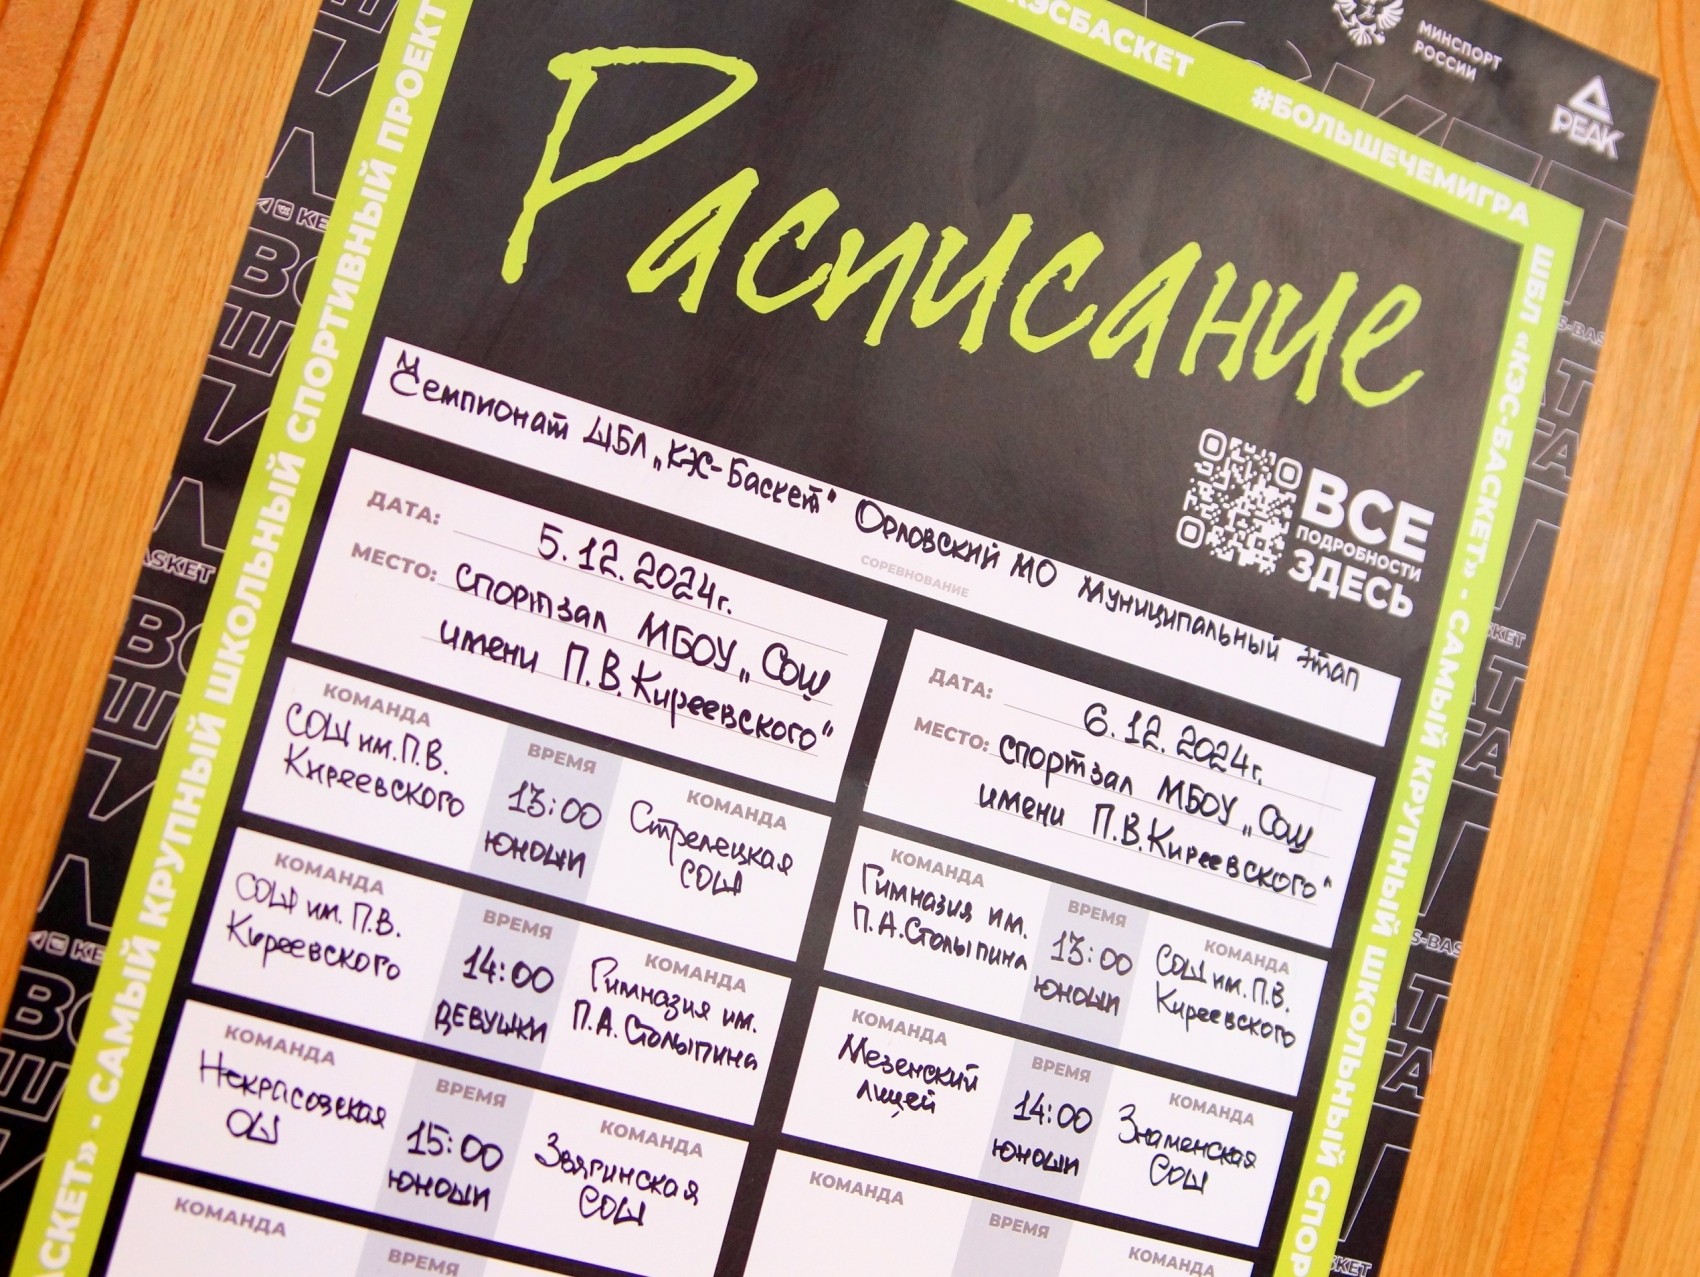 КЭСБАСКЕТ
#БОЛЬШЕЧЕМИГРА
МИНСПОРТ
РОССИИ
PEAK
Расписание
Чемпионат ШБЛ „КЭС-Баскет" Орловский МО Муниципальный этап
СОРЕВНОВАНИЕ
ВСЕ
ПОДРОБНОСТИ
ЗДЕСЬ
ДАТА: 5.12.2024г.
МЕСТО: спортзал МБОУ „СОШ
имени П.В.Киреевского"
КОМАНДА
СОШ им.П.В.
Киреевского
ВРЕМЯ
13:00
юноши
КОМАНДА
Стрелецкая
СОШ
КОМАНДА
СОШ им. П.В.
Киреевского
ВРЕМЯ
14:00
ДЕВУШКИ
КОМАНДА
Гимназия им.
П.А.Столыпина
КОМАНДА
Некрасовская
ОШ
ВРЕМЯ
15:00
юноши
КОМАНДА
Звягинская
СОШ
КОМАНДА
ВРЕМЯ
ДАТА: 6.12.2024г.
МЕСТО: спортзал МБОУ „СОШ
имени П.В.Киреевского"
КОМАНДА
Гимназия им.
П.А.Столыпина
ВРЕМЯ
13:00
юноши
КОМАНДА
СОШ им.П.В.
Киреевского
КОМАНДА
Мезенский
лицей
ВРЕМЯ
14:00
юноши
КОМАНДА
Знаменская
СОШ
КОМАНДА
ВРЕМЯ
КОМАНДА
АСКЕТ» - САМЫЙ КРУПНЫЙ ШКОЛЬНЫЙ СПОРТИВНЫЙ ПРОЕКТ
ШБЛ «КЭС-БАСКЕТ» - САМЫЙ КРУПНЫЙ ШКОЛЬНЫЙ СПОР